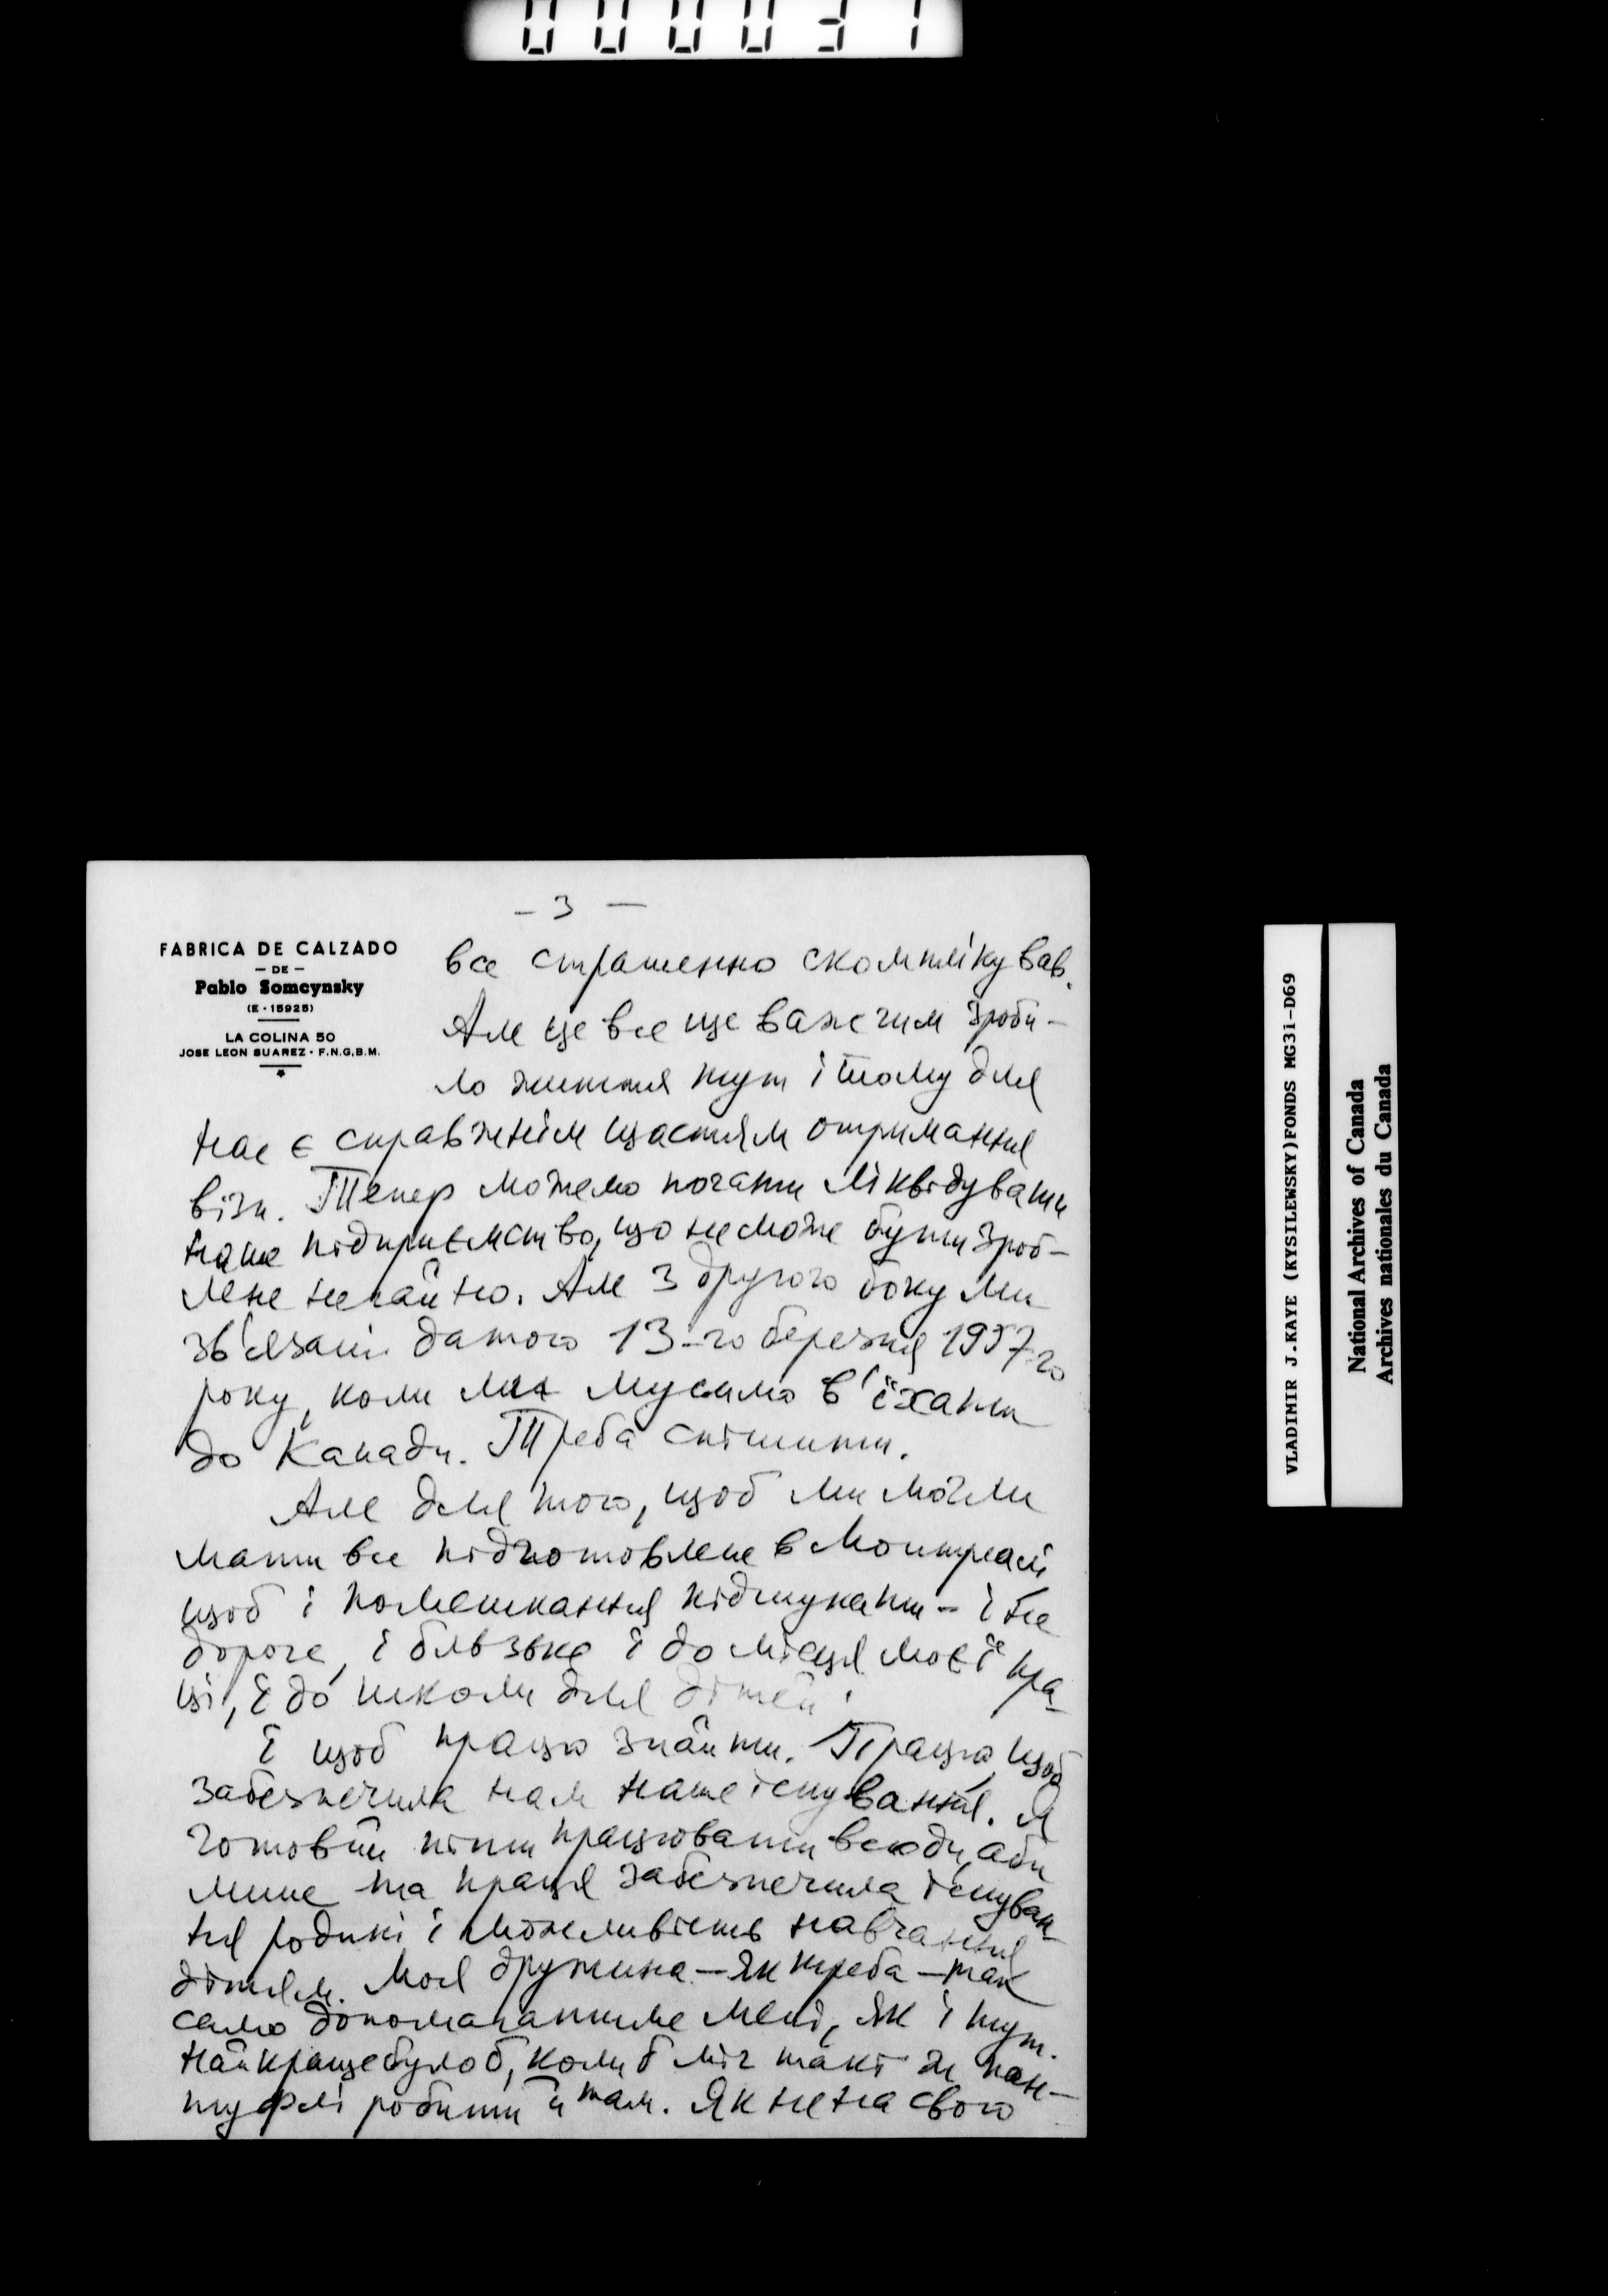 000031
- 3 -
FABRICA DE CALZADO
- DE -
Pablo Somcynsky
(E - 15925)
LA COLINA 50
JOSE LEON SUAREZ - F.N.G.B.M.
все страшенно скомплікував.
Але це все ще важчим зроби-
ло життя тут і тому для
нас є справжнім щастям отримання
візи. Тепер можемо почати ліквідувати
наше підприємство, що не може бути зроб-
лене негайно. Але з другого боку ми
зв'язані датою 13-го березня 1957-го
року, коли ми мусимо в'їхати
до Канади. Треба спішити.
Але для того, щоб ми могли
мати все підготовлене в Монтреалі
щоб і помешкання підшукати - і не
дороге, і близько і до місця моєї пра-
ці, і до школи для дітей.
І щоб працю знайти. Працю, щоб
забезпечила нам наше існування. Я
готовий піти працювати всюди, аби
лише та праця забезпечила існуван-
ня родині і можливість навчання
дітям. Моя дружина - як треба - так
само допомагатиме мені, як і тут.
Найкраще було б, коли б міг такі ж пан-
туфлі робити й там. Як не на свою
VLADIMIR J.KAYE (KYSILEWSKY)FONDS MG31-D69
National Archives of Canada
Archives nationales du Canada